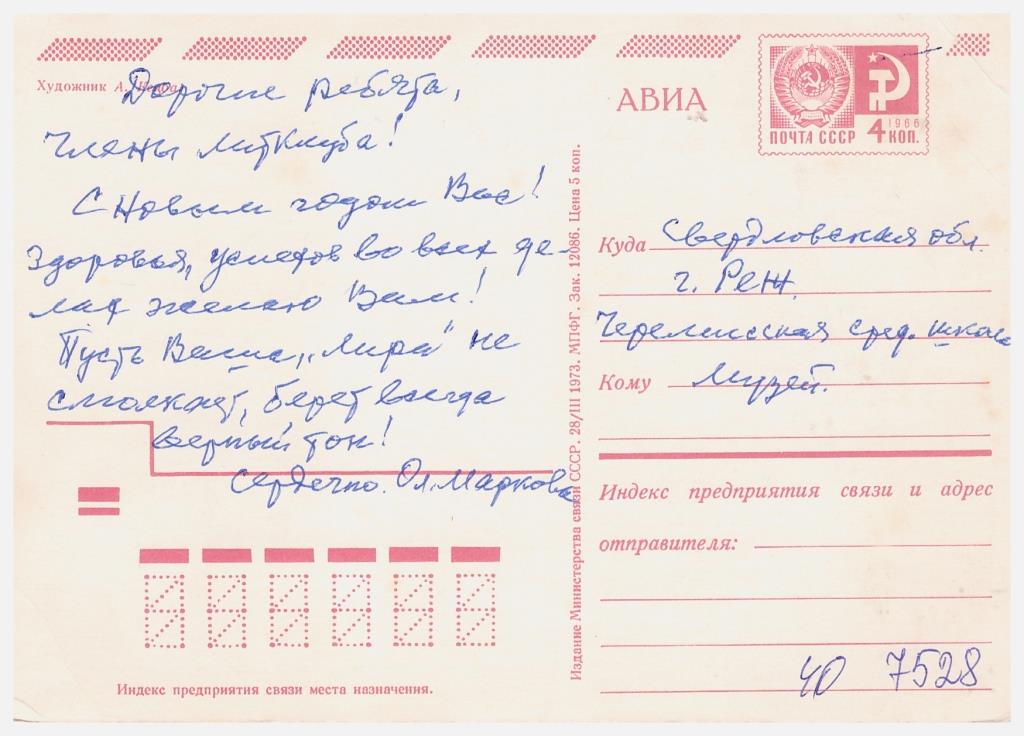 Художник А.
Дорогие ребята,
члены литклуба!
С Новым годом Вас!
Здоровья, успехов во всех де-
лах желаю Вам!
Пусть Ваша „Лира" не
смолкнет, берет всегда
верный тон!
Сердечно. Ол. Маркова
Индекс предприятия связи места назначения.
Издание Министерства связи СССР. 28/III 1973. МПФГ. Зак. 12086. Цена 5 коп.
АВИА
ПОЧТА СССР
1966
4 КОП.
Куда Свердловская обл.
г. Реж.
Черемисская сред. школа
Кому Музей.
Индекс предприятия связи и адрес
отправителя:
ЧО 7528